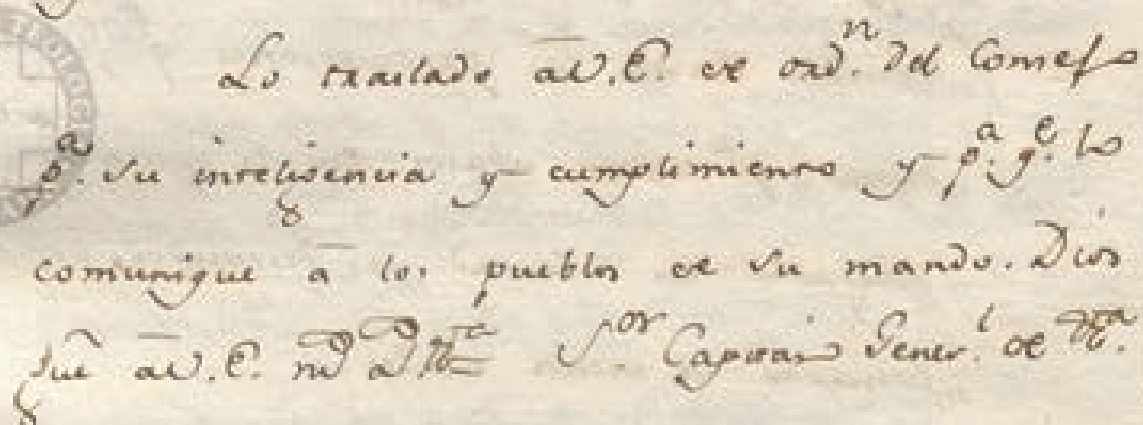 Lo traslado a V.E. de ordn. del Consejo
pa. su inteligencia y cumplimiento y pa. qe. lo
comunique a los pueblos de su mando. Dios
gue a V.E. ms as Sor Capitan Generl. de